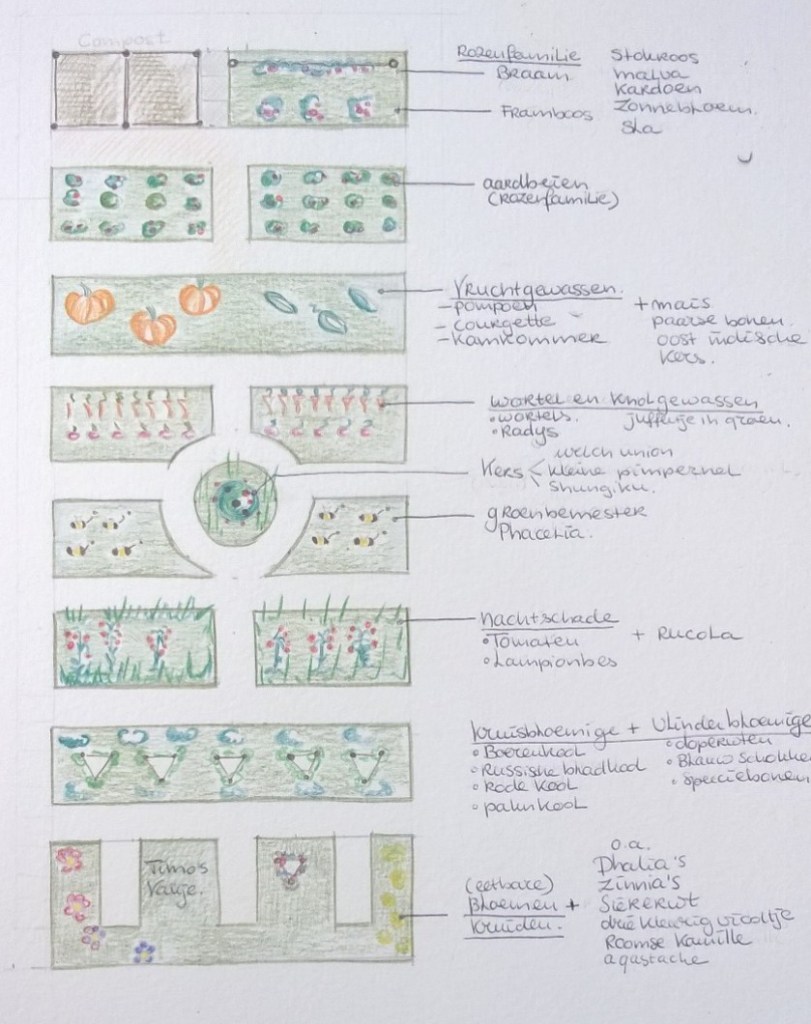 Compost
Rozenfamilie
Braam
Framboos
Stokroos
malva
kardoen
Zonnebloem.
Sla
aardbeien
(Rozenfamilie)
Vruchtgewassen.
- pompoen
- courgette
- komkommer
+ mais
paarse bonen.
oost indische
kers.
wortel en knolgewassen
• wortels.
• Radys
juffertje in groen.
Kers
welch union
kleine pimpernel
Shungiku.
groenbemester
Phacelia.
nachtschade
• Tomaten
• Lampionbes
+ Rucola
kruisbloemige + Vlinderbloemige
• Boerenkool
• Russische bladkool
• Rode kool
• palmkool
• doperwten
• Blauwschokke
• speciebonen
Timo's
Vakje.
(eetbare)
Bloemen +
kruiden.
o.a.
Dhalia's
Zinnia's
Sierkruit
driekleurig viooltje
Roomse kamille
agastache